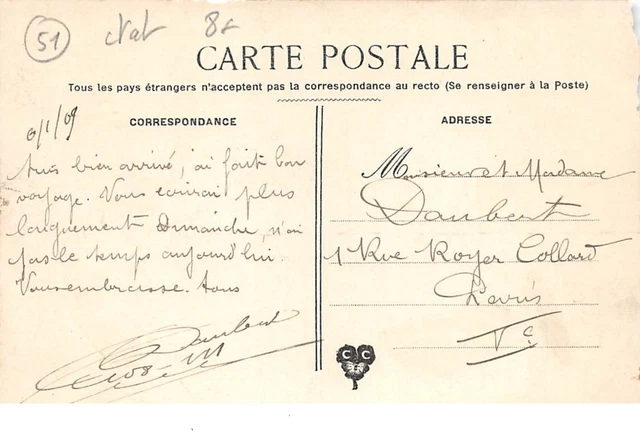 51
8f
CARTE POSTALE
Tous les pays étrangers n'acceptent pas la correspondance au recto (Se renseigner à la Poste)
CORRESPONDANCE
ADRESSE
/1/09
suis bien arrivé, ai fait bon
voyage. Vous écrirai plus
longuement Dimanche, n'ai
pas le temps aujourd'hui.
Vous embrasse. tous
Daubert
Monsieur et Madame
Daubert
1 Rue Royer Collard
Paris
Ve
C C